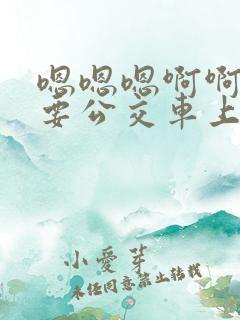 嗯嗯嗯啊啊
要公交車上
小愛芽
未经同意禁止转载